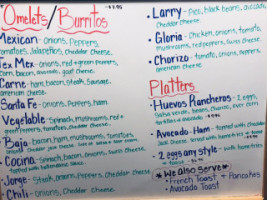 Omelets/Burritos
Mexican - onions, Peppers,
tomatoes, Jalapeños, Cheddar Cheese.
Tex Mex - onions, red + green peppers,
corn, bacon, avocado,
Carne - ham, bacon, steak, Sausage,
american cheese.
Santa Fe - onions, Peppers, ham.
Vegetable - Spinach, mushrooms, red +
green Peppers, tomatoes, cheddar cheese.
Baja - bacon, ham, mushrooms, tomatoes
Cocina - Spinach, bacon, onions, Swiss cheese
Jorge - Steak, onions, Peppers, Cheddar Cheese.
Chili - onions, Cheddar Cheese.
Larry - Rice, black beans, avocado,
Cheddar Cheese.
Gloria - Chicken, onions, tomato,
mushrooms, red peppers, Swiss cheese.
Chorizo - tomato, onions,
american cheese
Platters
Huevos Rancheros - 2 eggs,
Salsa verde, beans, Cheese, over
tortillas + avocado.
Avocado - Ham - topped with cheddar
2 eggs any style - with home fries
+ toast
*We also serve*
• French Toast • Pancakes
• Avocado Toast